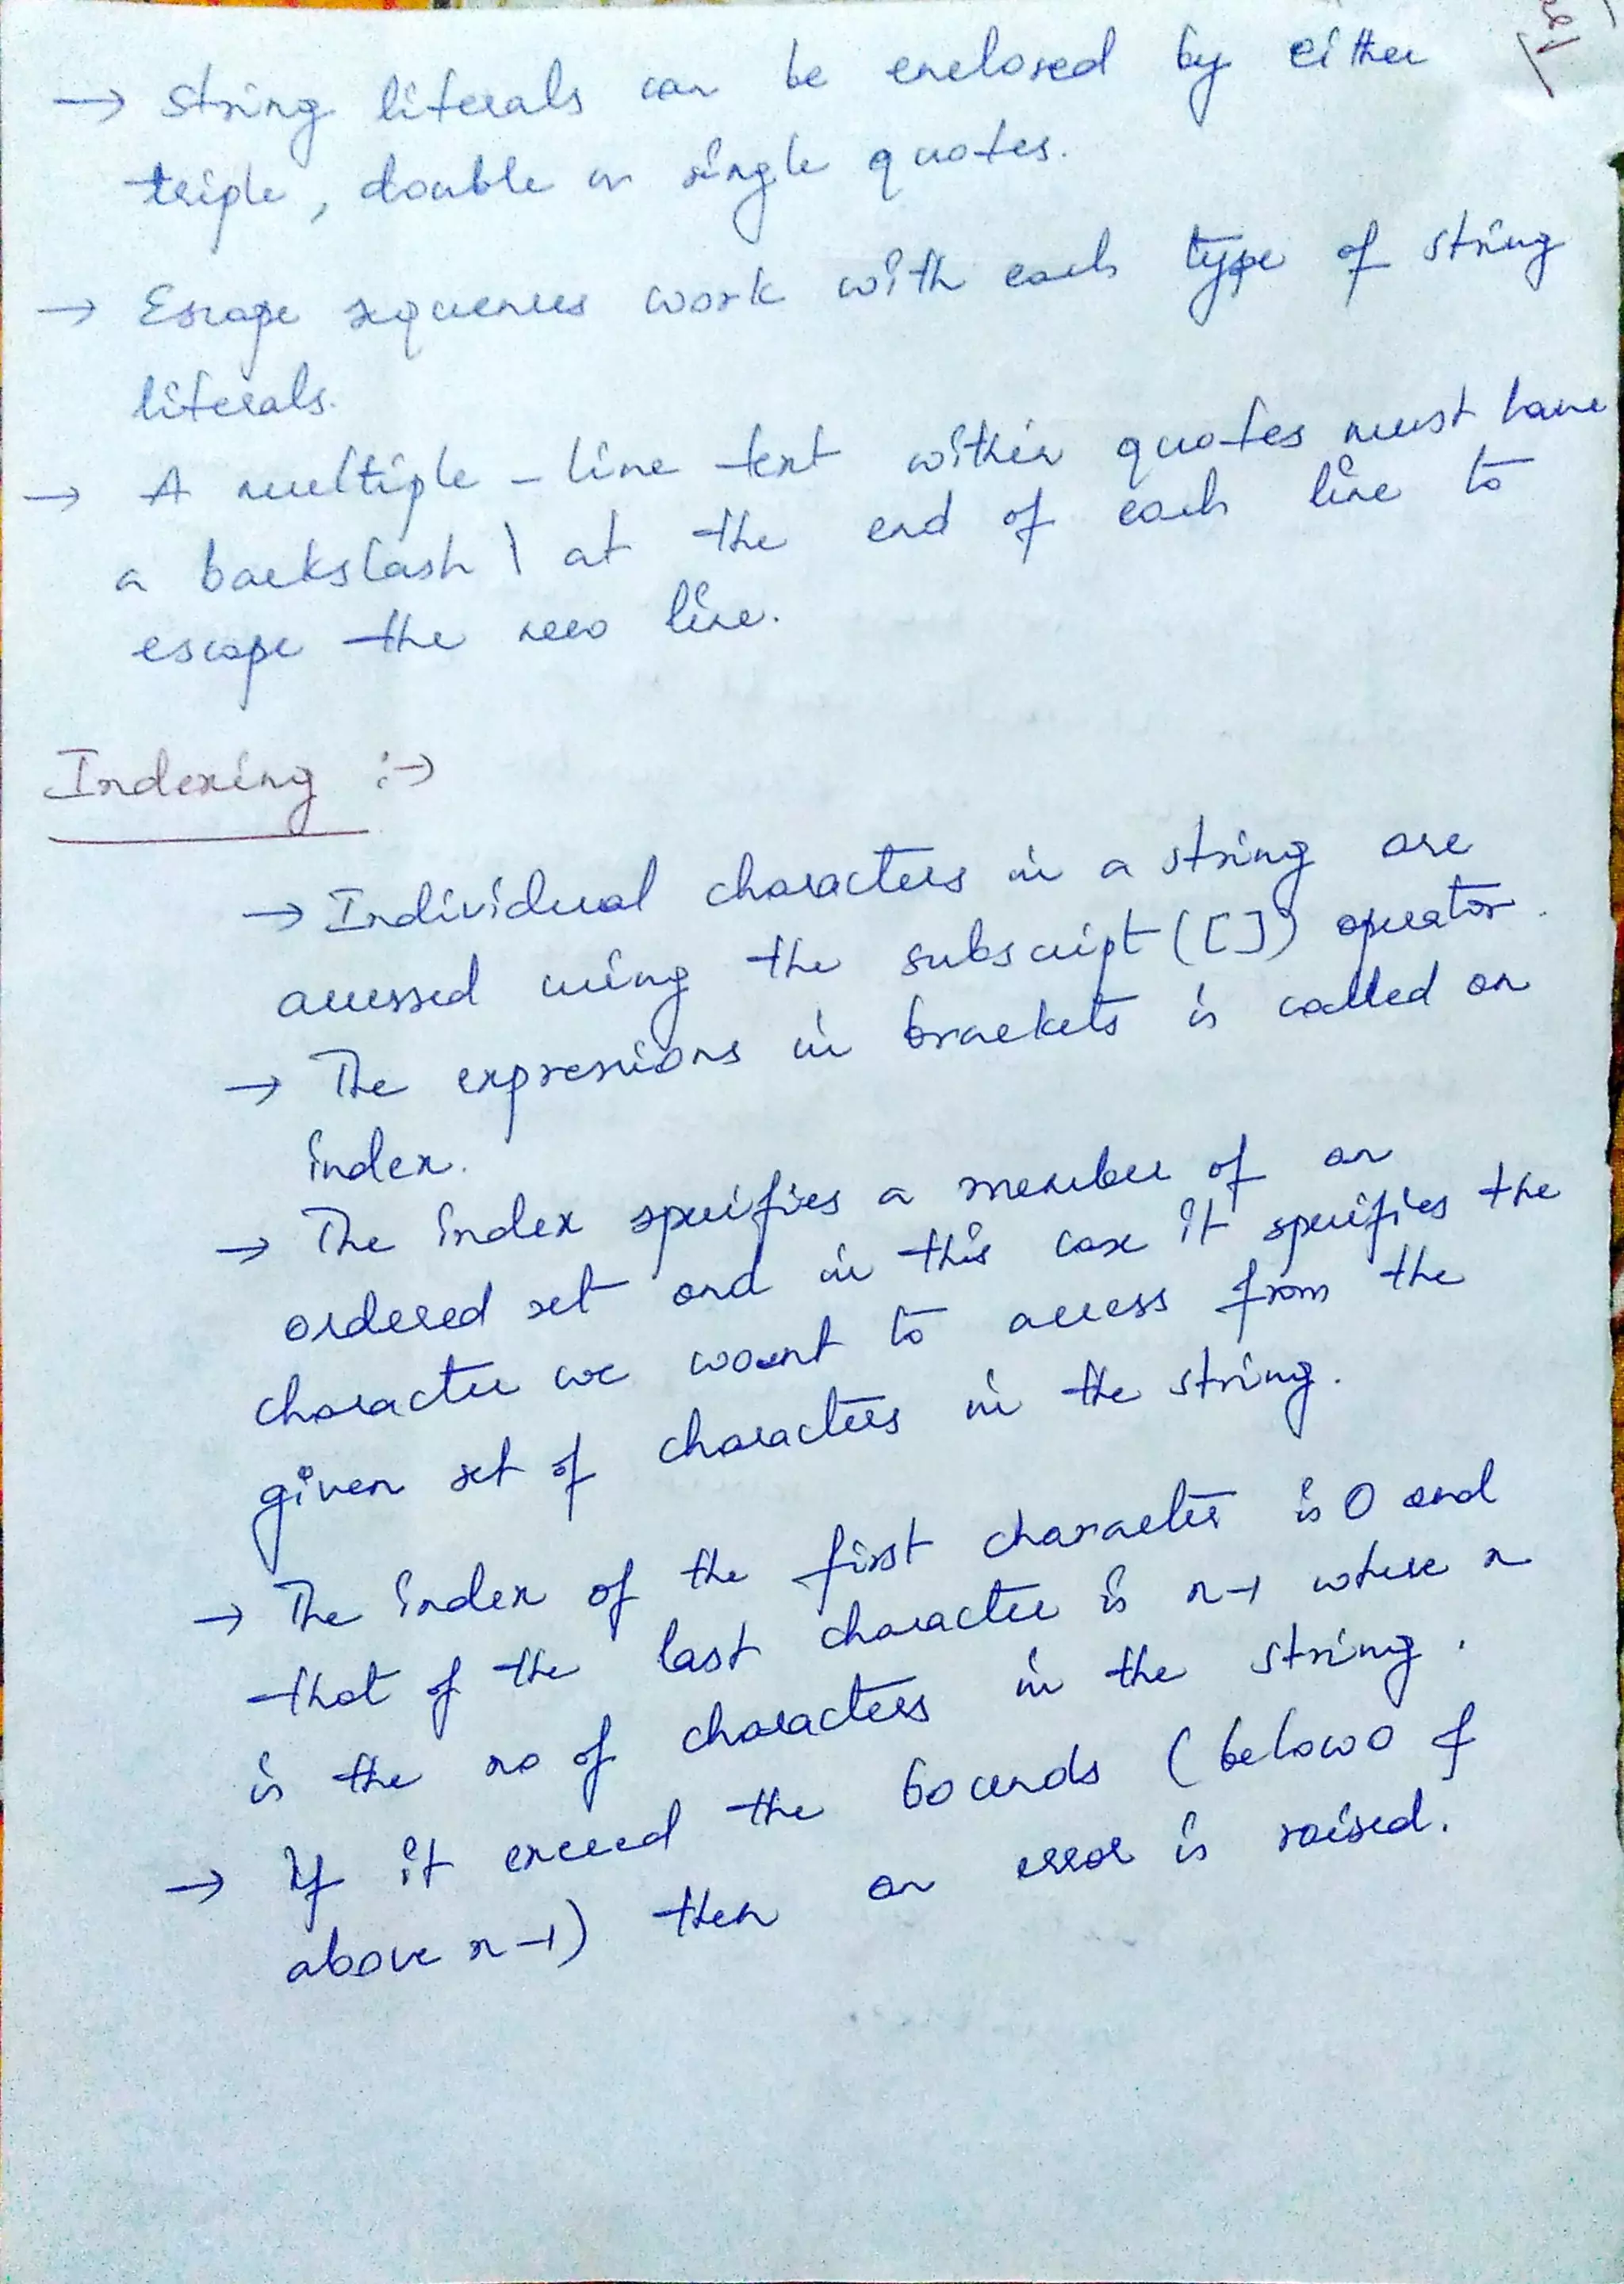 → String literals can be enclosed by either
triple, double or single quotes.
→ Escape sequences work with each type of string
literals.
→ A multiple - line text within quotes must have
a backslash \ at the end of each line to
escape the new line.
Indexing :→
→ Individual characters in a string are
accessed using the subscript ([]) operator.
→ The expressions in brackets is called an
index.
→ The index specifies a member of an
ordered set and in this case it specifies the
character we want to access from the
given set of characters in the string.
→ The index of the first character is 0 and
that of the last character is n-1 where n
is the no of characters in the string.
→ If it exceed the bounds (below 0 &
above n-1) then an error is raised.